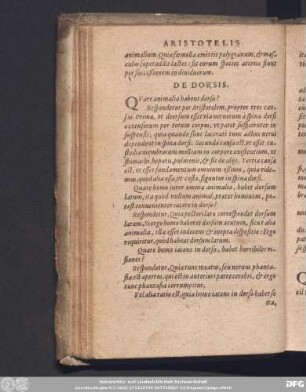 ARISTOTELIS
animalium. Quia fœmella emittit polygranum, & mas-
culus super addit lactes: sic eorum species æterna fiunt
per successionem indiuiduorum.
DE DORSIS.
QVare animalia habent dorsa?
Respondetur per Aristotelem, propter tres cau-
sas. Prima, vt dorsum esset via neruorum à spina dorsi
extensorum per totum corpus, vt patet
suspensis, quia quando sunt lacerati tunc adhuc nerui
dependent in spina dorsi. Secunda causa est, vt esset cu-
stodia membrorum mollium in corpore existentium, vt
stomachi, hepatis, pulmonis, & sic de alijs. Tertia causa
est, vt esset fundamentum omnium ossium, quia vide-
mus, quòd alia ossa, vt costæ, figuntur in spina dorsi.
Quare homo inter omnia animalia, habet dorsum
latum, ita quòd nullum animal, præter hominem, po-
test conuenienter iacere in dorso?
Respondetur, Quia pectori lato correspondet dorsum
latum. Si ergo homo haberet dorsum acutum, sicut alia
animalia, illa esset indecens & corporis dispositio: Ergo
requiritur, quòd habeat dorsum latum.
Quare homo iacens in dorso, habet horribiles vi-
siones?
Respondetur, Quia tunc meatus, seu neruus phanta-
siæ est apertus, qui est in anteriori parte cerebri, & ergo
tunc phantasia corrumpitur.
Vel alia ratio est, quia homo iacens in dorso habet se
ita,